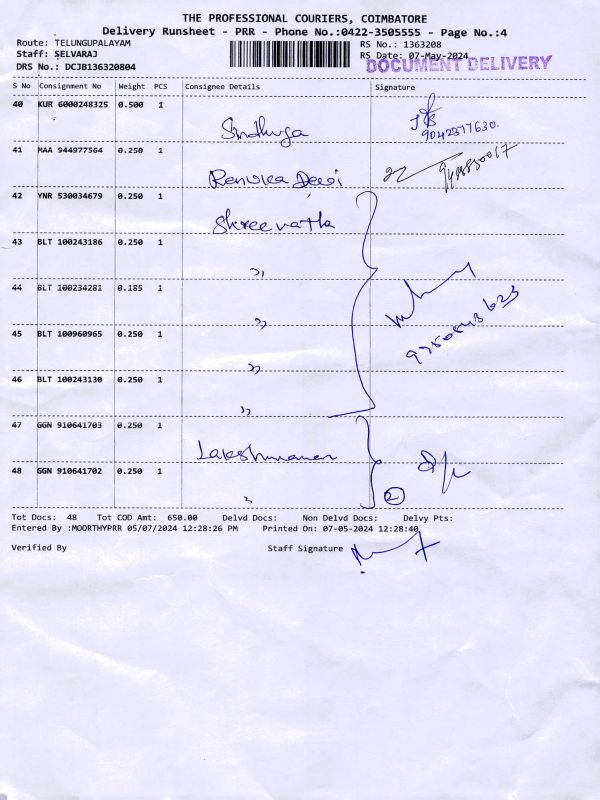 THE PROFESSIONAL COURIERS, COIMBATORE
Delivery Runsheet - PRR - Phone No.:0422-3505555 - Page No.:4
Route: TELUNGUPALAYAM
RS No.: 1363208
Staff: SELVARAJ
RS Date: 07-May-2024
DRS No.: DCJB136320804
DOCUMENT DELIVERY
S No Consignment No Weight PCS Consignee Details Signature
40 KUR 6000248325 0.500 1
Sndhuja
9042377630.
41 MAA 944977564 0.250 1
Renuka Devi
42 YNR 530034679 0.250 1
Shreevatha
43 BLT 100243186 0.250 1
"
44 BLT 100234281 0.185 1
"
45 BLT 100960965 0.250 1
"
46 BLT 100243130 0.250 1
"
47 GGN 910641703 0.250 1
Lakshmanan
48 GGN 910641702 0.250 1
"
2
Tot Docs: 48 Tot COD Amt: 650.00 Delvd Docs: Non Delvd Docs: Delvy Pts:
Entered By :MOORTHYPRR 05/07/2024 12:28:26 PM Printed On: 07-05-2024 12:28:40
Verified By Staff Signature